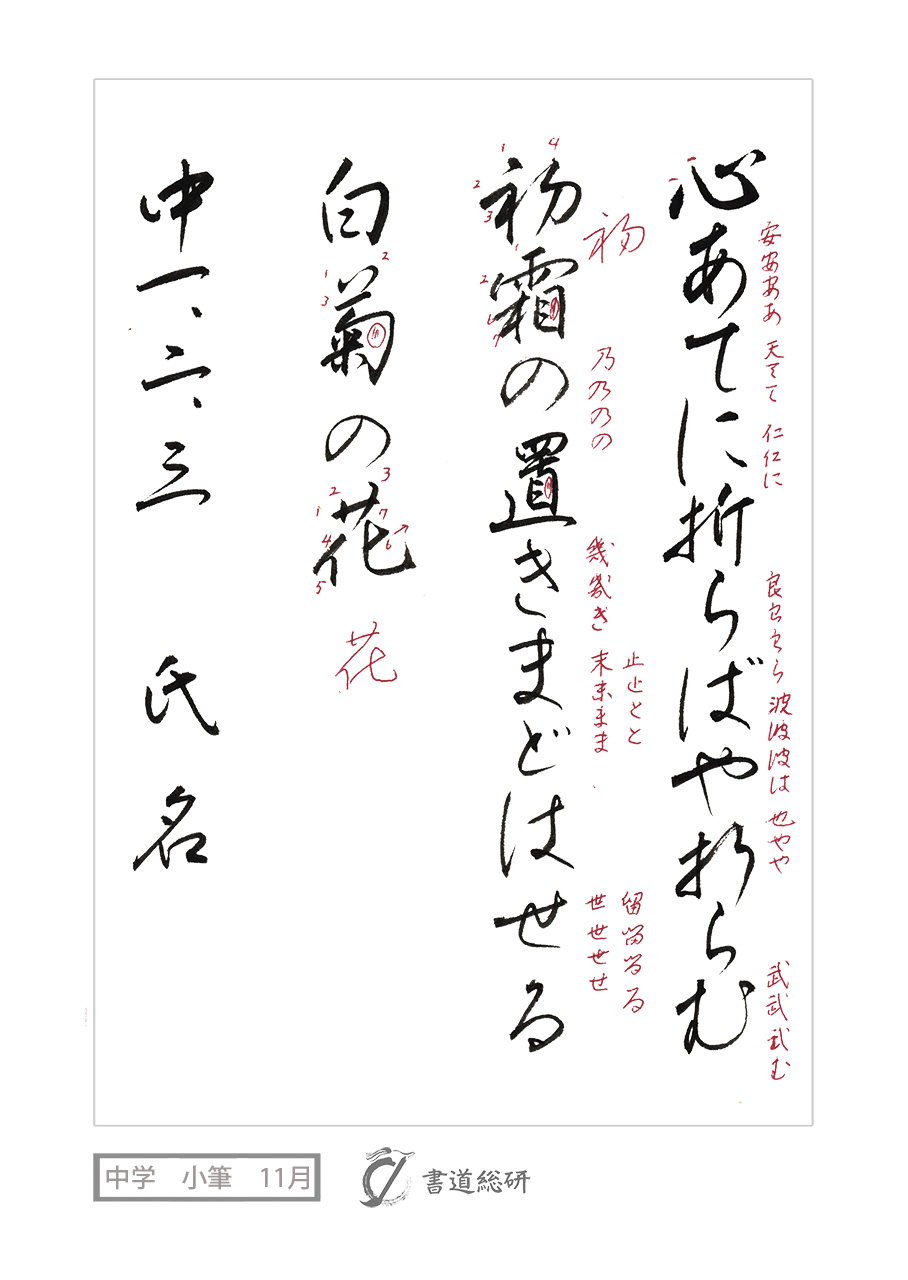 心あてに折らばや折らむ
安安ああ 天てて 仁仁に
良良らら 波波波は 也やや
武武武む
初霜の置きまどはせる
初
乃乃乃の
幾幾き 末末まま
止止とと
世世せせ
留留るる
白菊の花
花
中一、二、三 氏名
中学 小筆 11月
書道総研